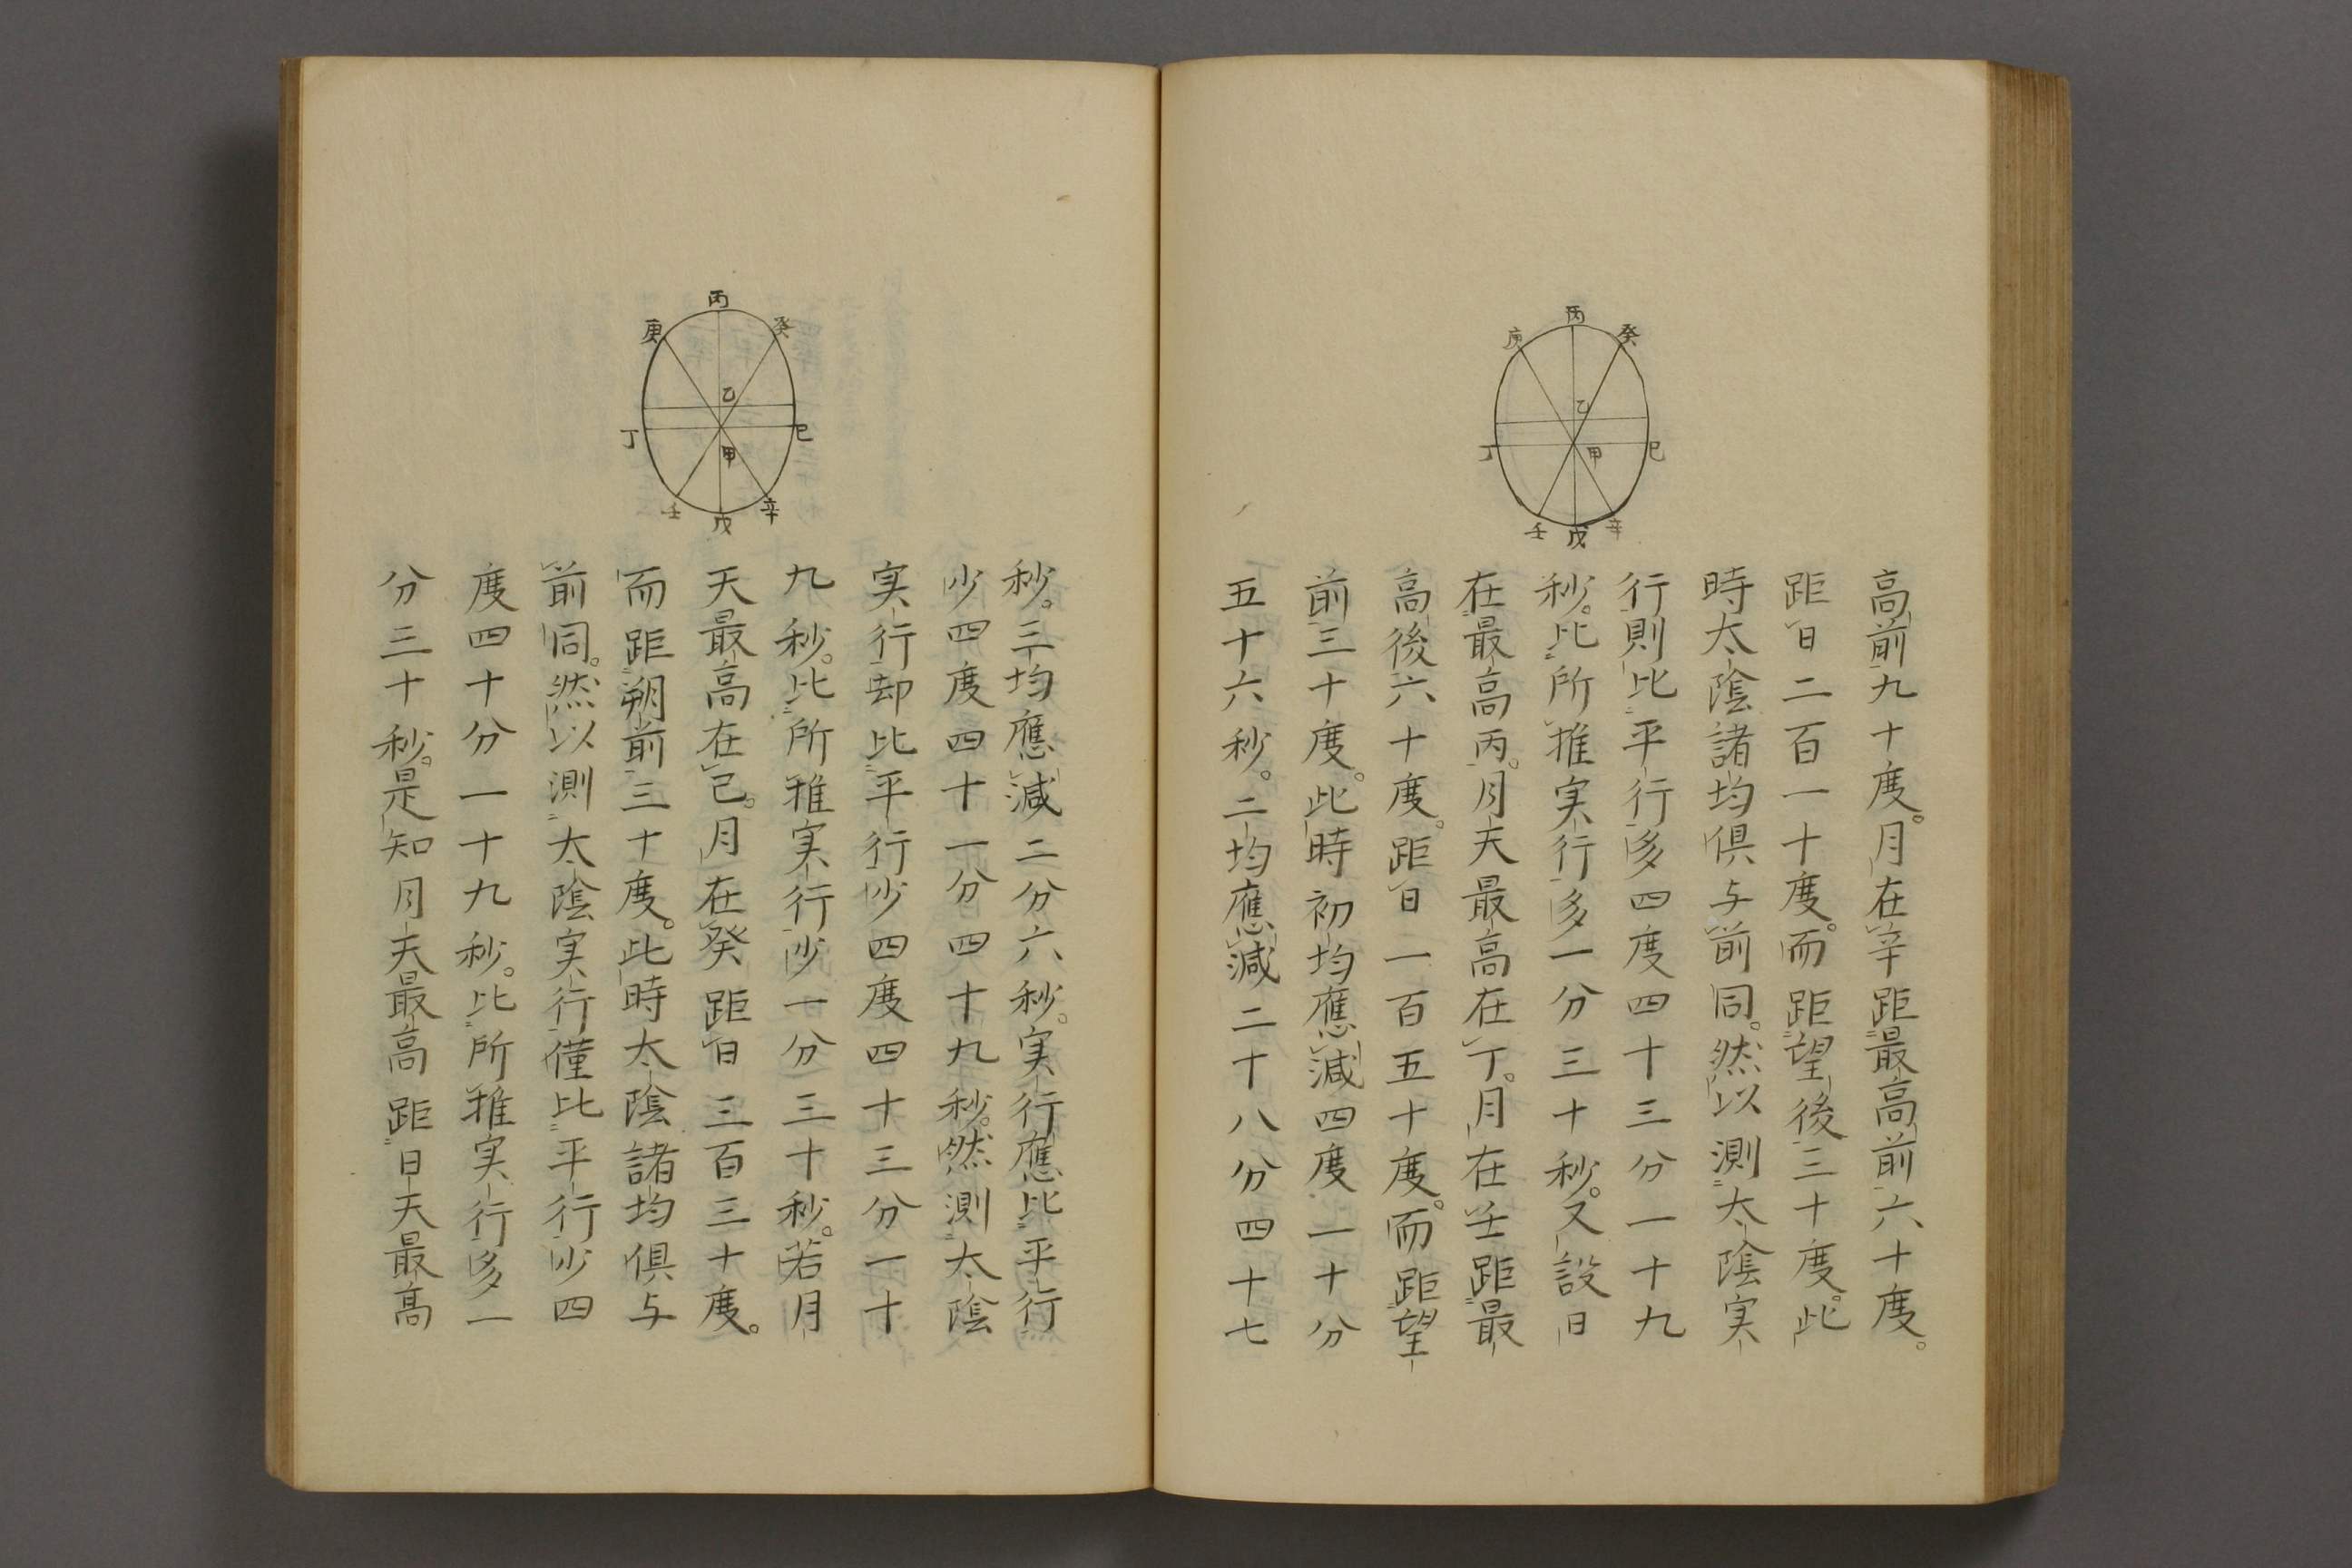 丙
庚
癸
乙
丁
巳
甲
壬
戊
辛
高前九十度。月在辛距最高前六十度。
距日二百一十度。而距望後三十度。此
時太陰諸均俱与前同。然以測太陰実
行則比平行多四度四十三分一十九
秒。比所推実行多一分三十秒。又設日
在最高丙。月天最高在丁。月在壬距最
高後六十度。距日一百五十度。而距望
前三十度。此時初均應減四度一十分
五十六秒。二均應減二十八分四十七
丙
庚
癸
乙
丁
巳
甲
壬
戊
辛
秒。三均應減二分六秒。実行應比平行
少四度四十一分四十九秒。然測太陰
実行却比平行少四度四十三分一十
九秒。比所推実行少一分三十秒。若月
天最高在已。月在癸距日三百三十度。
而距朔前三十度。此時太陰諸均俱与
前同。然以測太陰実行僅比平行少四
度四十分一十九秒。比所推実行多一
分三十秒。是知月天最高距日天最高